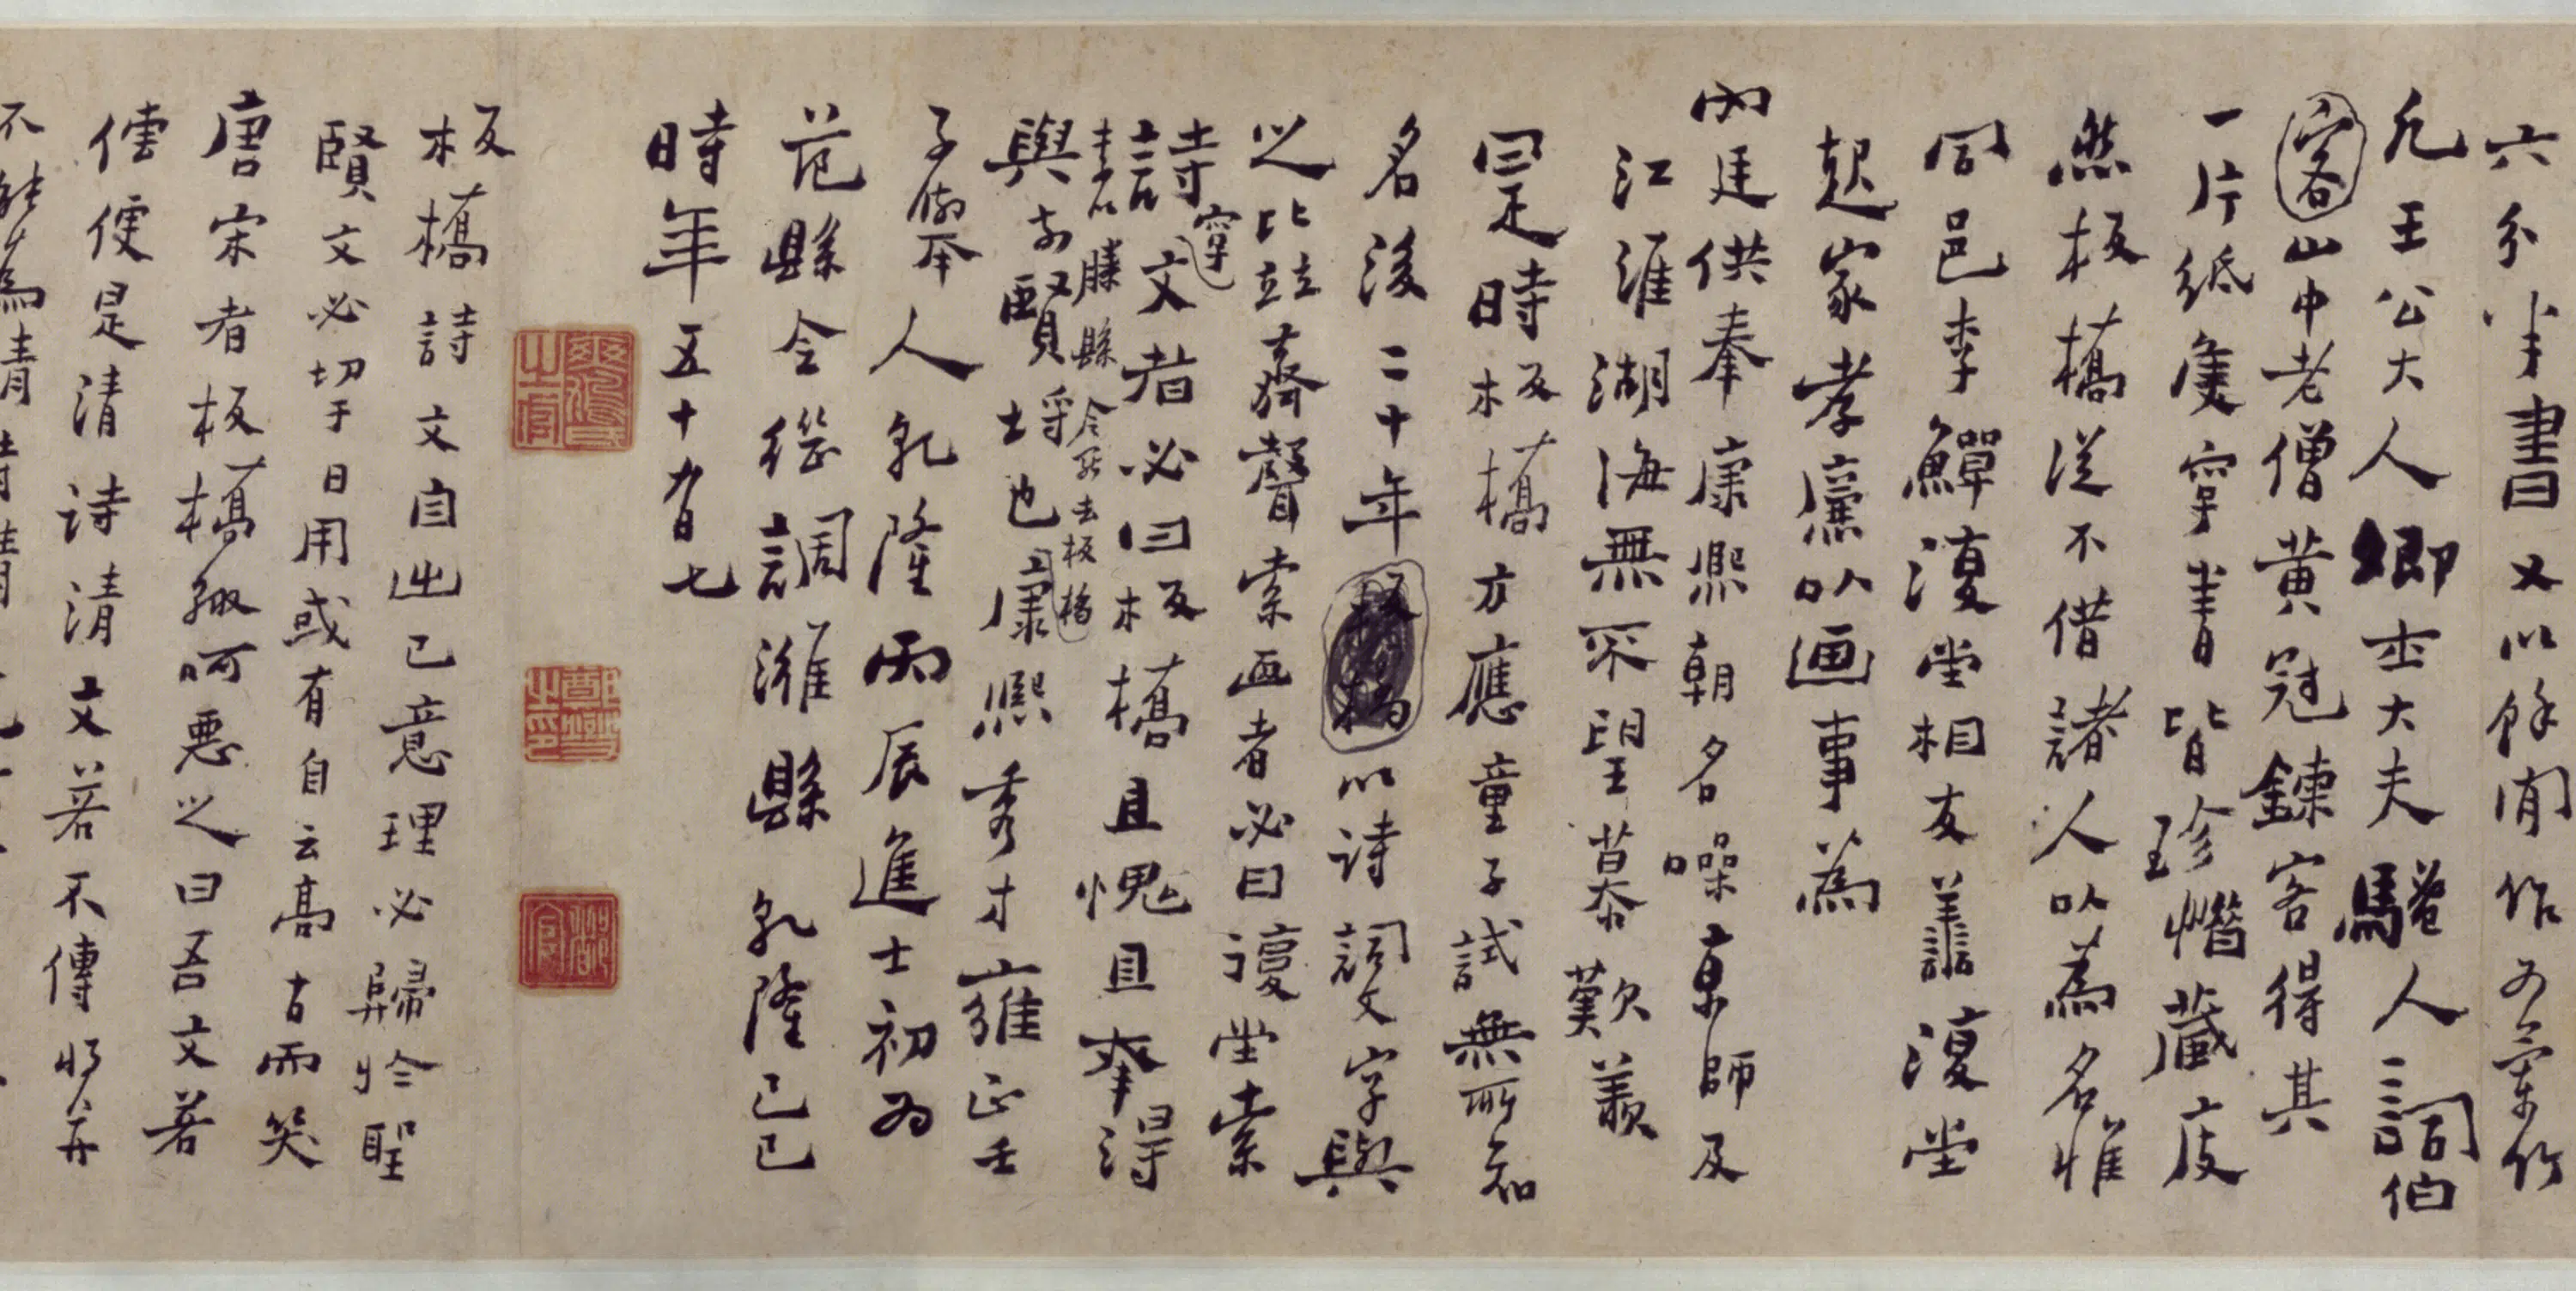 六分半書又以餘閒作為蘭竹
凡王公大人卿士大夫騷人詞伯
山中老僧黃冠鍊客得其
一片紙隻字書皆珍惜藏庋
然板橋從不借諸人以為名惟
同邑李鱓復堂相友善復堂
起家孝廉以画事為
內廷供奉康熙朝名噪京師及
江淮湖海無不望慕歎羨
是時板橋方應童子試無所知
名後二十年以詩詞文字與
之比並齊聲索画者必曰復堂索
詩字文者必曰板橋且愧且幸得
與前賢埒也
李以滕縣令罷去板橋
康熙秀才雍正壬
子舉人乾隆丙辰進士初為
范縣令繼調濰縣乾隆己巳
時年五十有七
鄭燮之印
板橋詩文自出己意理必歸於聖
賢文必切于日用或有自云高古而笑
唐宋者板橋輒呵惡之曰吾文若
傳便是清詩清文若不傳將并
不能為清詩清